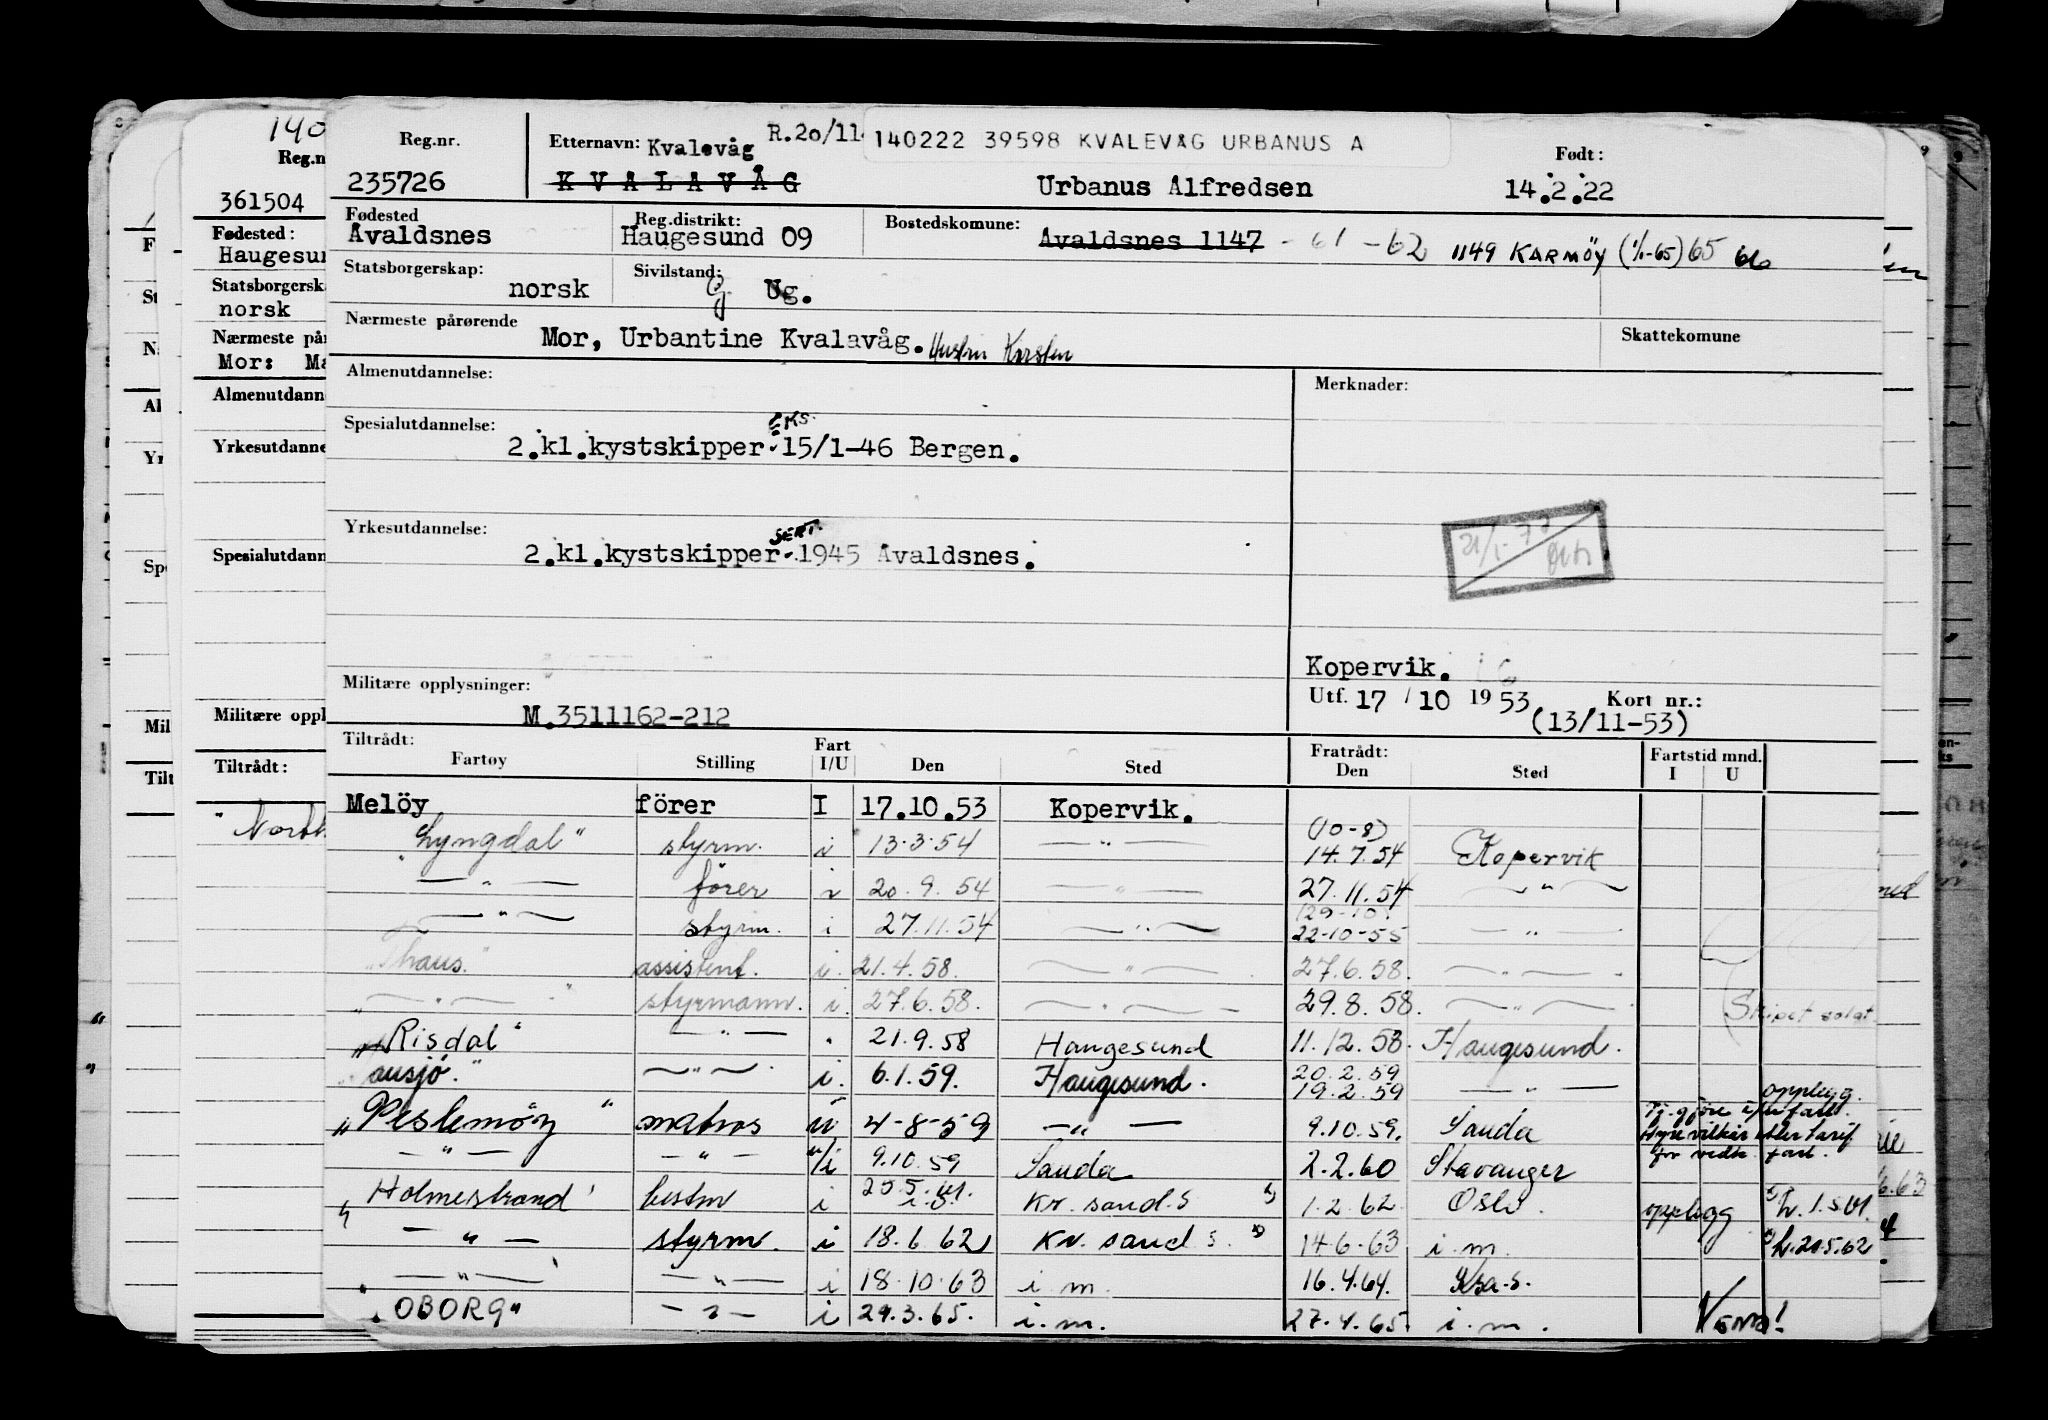 Reg.nr. Etternavn: Kvalevåg R.20/11 140222 39598 KVALEVÅG URBANUS A Født:
235726 KVALAVÅG Urbanus Alfredsen 14.2.22
Fødested Reg.distrikt: Bostedskomune:
Avaldsnes Haugesund 09 Avaldsnes 1147 - 61 - 62 1149 KARMÖY (1/1-65) 65 66
Statsborgerskap: norsk Sivilstand: G Ug.
Nærmeste pårørende Mor, Urbantine Kvalavåg. Hustru Karsten Skattekomune
Almenutdannelse: Merknader:
Spesialutdannelse: EKS.
2.kl.kystskipper 15/1-46 Bergen.
Yrkesutdannelse: SERT.
2.kl.kystskipper 1945 Avaldsnes.
21/1-77
Kopervik.
Militære opplysninger: Utf. 17 / 10 1953 Kort nr.:
M.3511162-212 (13/11-53)
Tiltrådt: Fart Fratrådt: Fartstid mnd.
Fartøy Stilling I/U Den Sted Den Sted I U
Melöy förer I 17.10.53 Kopervik.
(10-8)
"Lyngdal" styrm. i 13.3.54 — " — 14.7.54 Kopervik
— " — förer i 20.9.54 — " — 27.11.54 — " —
— " — styrm. i 27.11.54 — " — 22-10-55 — " —
"Thaus" assistent. i. 21.4.58. — " — 27.6.58. — " —
— " — styrmann. i. 27.6.58. — " — 29.8.58. — " — Skipet solgt.
"Risdal" — " — " 21.9.58 Haugesund 11.12.58. Haugesund.
ausjö." — " — i. 6.1.59. Haugesund. 20.2.59
19.2.59 — " — opplegg.
"Peslemöy" matros u 4-8-59 — " — 9.10.59. Sauda
— " — — " — u/i 9.10.59 Sauda 2.2.60 Stavanger
Holmestrand bestm i 25.5.61. Kr. sand.S 1.2.62. Oslo. opplegg h. 1.5.61.
— " — styrm. i 18.6.62 Kr. sand S. 14-6-63 i.m. h.20.5.62
— " — — " — i 18-10-63 i.m. 16.4.64. Krsa-S.
"OBORG" — " — i 29.3.65. i.m. 27.4.65. i.m. Vend!
361504
Fødested:
Haugesun
norsk
Nærmeste på
Mor: Ma
Almenutdann
Yrkesutdanne
Spesialutdann
Militære oppl
Tiltrådt: